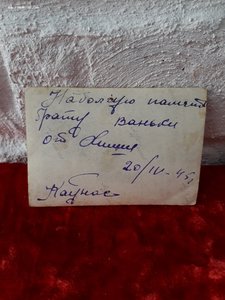 На долгую памят
брату Ваньки
от
20/IV-45г
Каунас